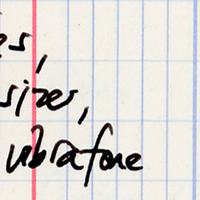 es,
sizes,
vibrafone